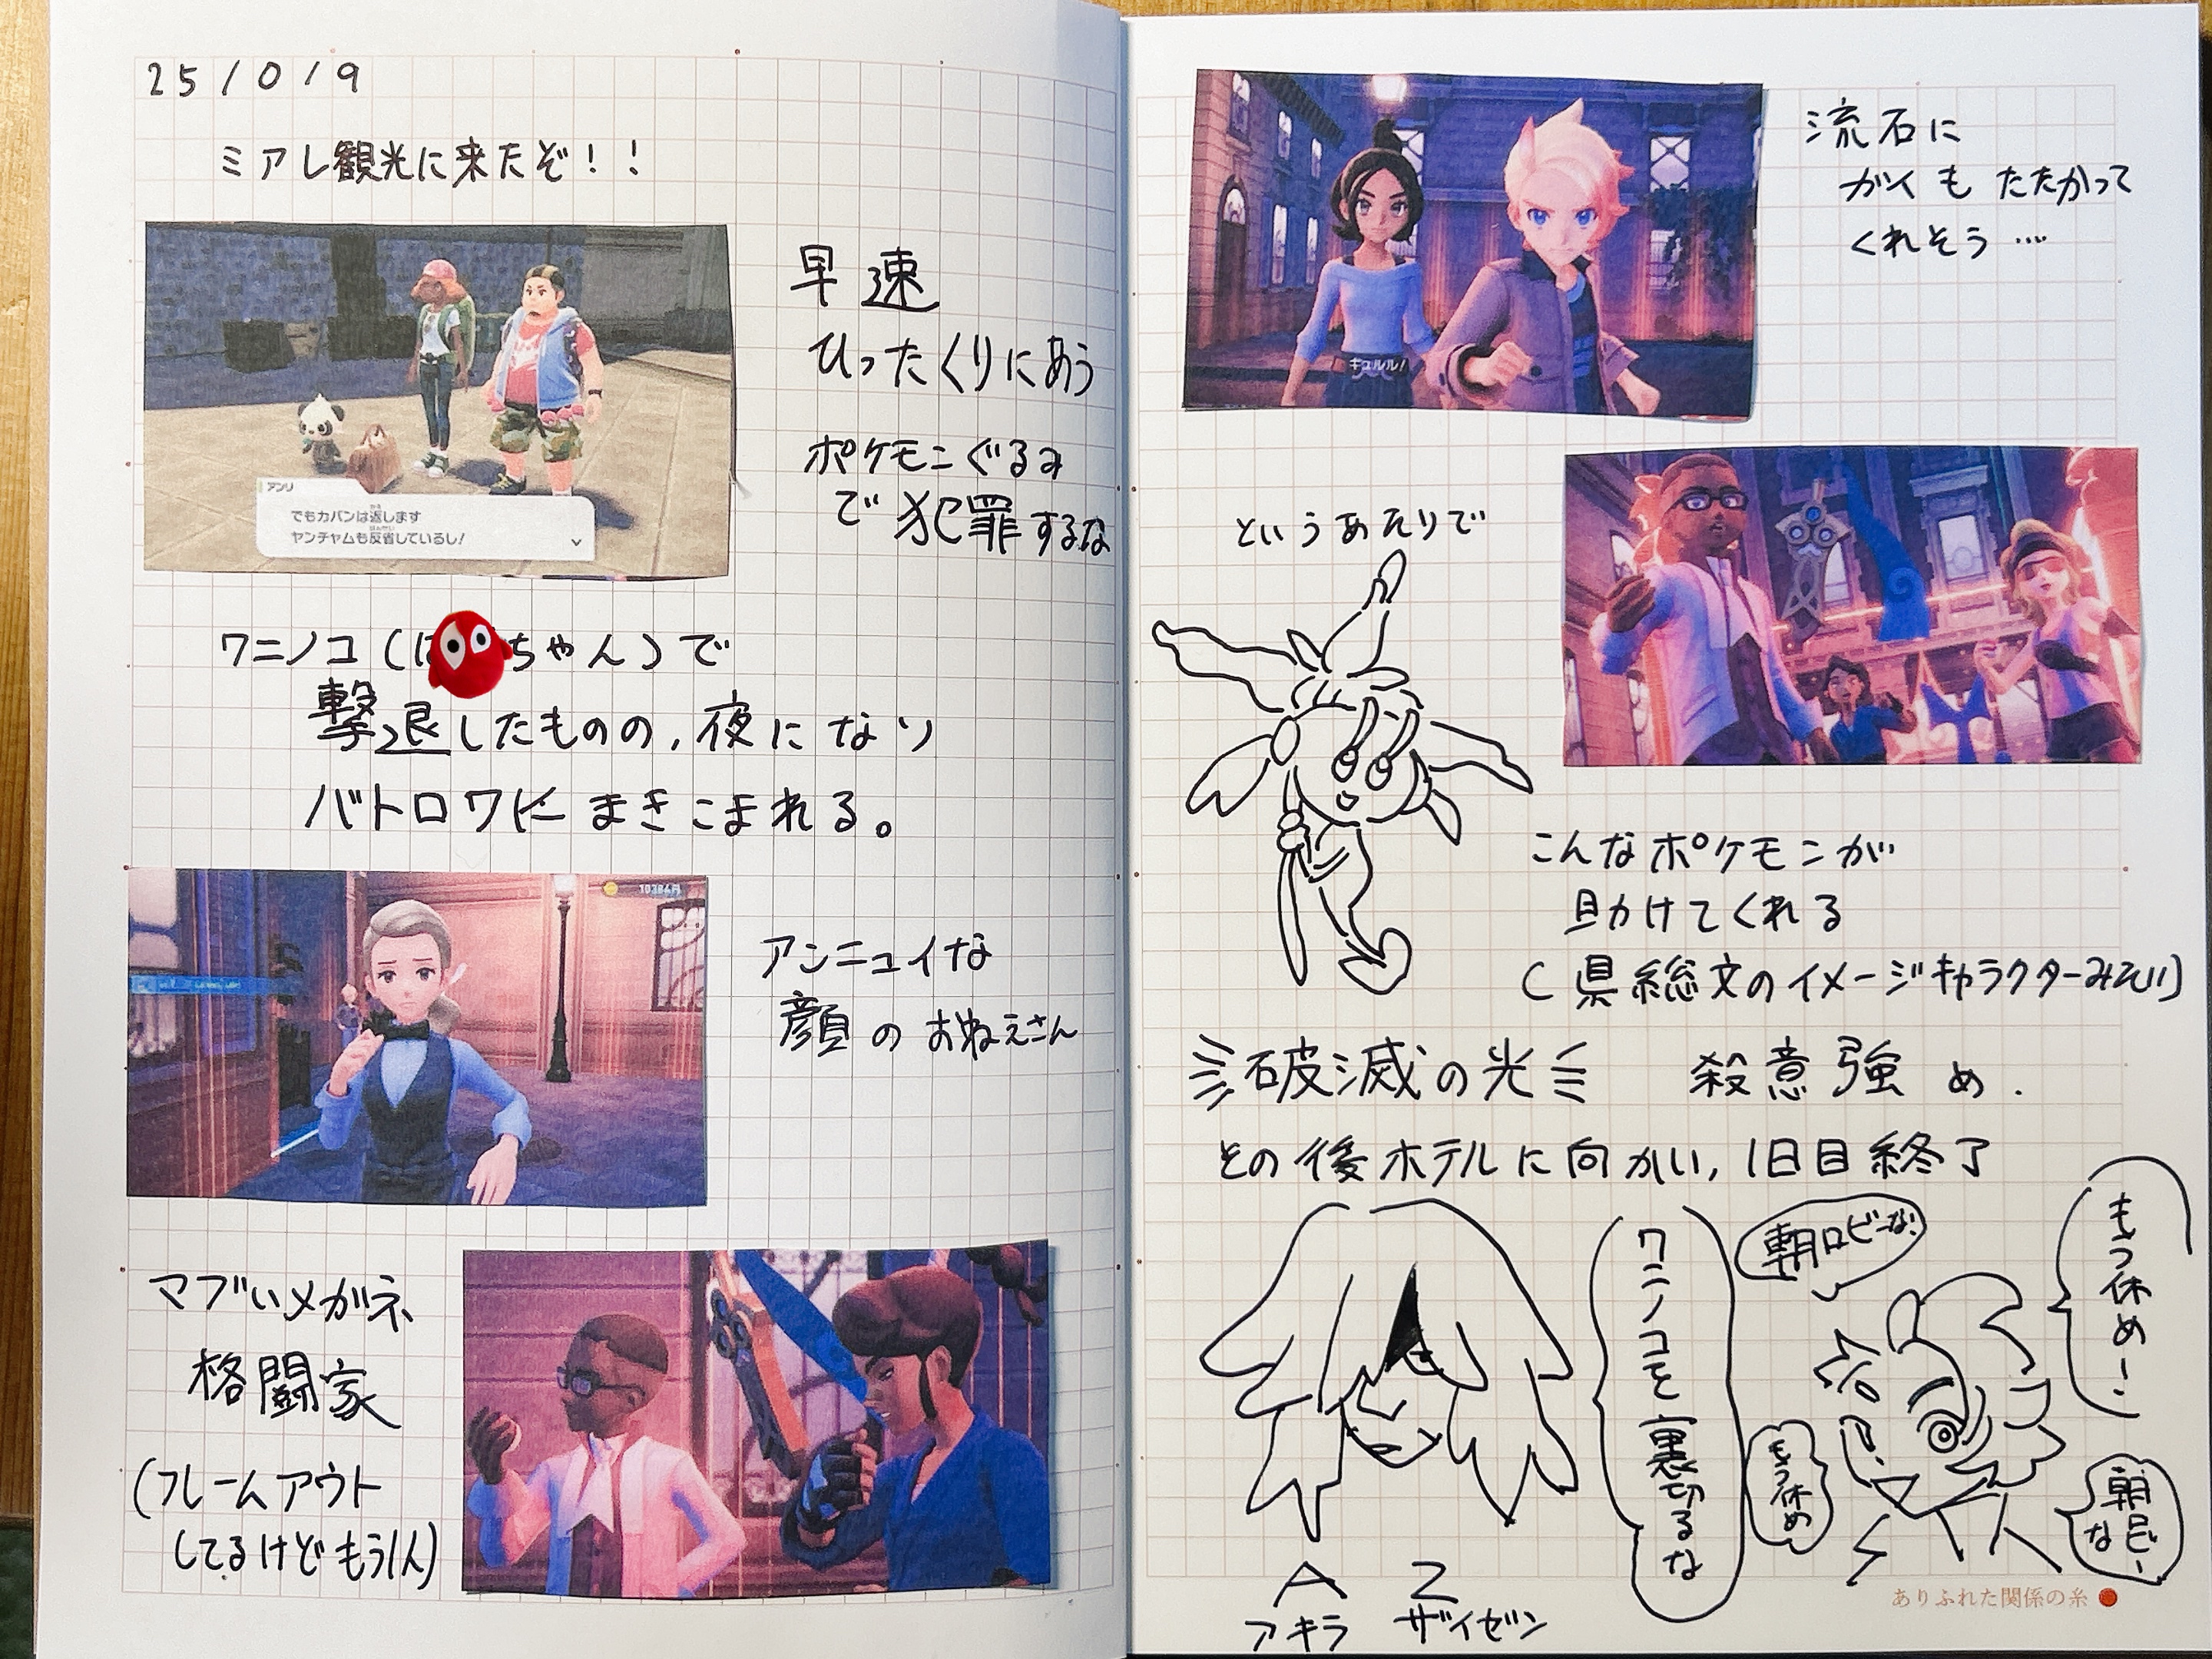 251019
ミアレ観光に来たぞ！！
アンリ
でもカバンは返します
ヤンチャムも反省しているし！
早速
ひったくりにあう
ポケモンぐるみ
で犯罪するな
ワニノコ（に ちゃん）で
撃退したものの，夜になり
バトロワにまきこまれる。
10384円
アンニュイな
顔のおねえさん
マブいメガネ
格闘家
（フレームアウト
してるけどもう1人）
流石に
ガイもたたかって
くれそう…
キュルル！
というあたりで
こんなポケモンが
助けてくれる
（県総文のイメージキャラクターみたい）
破滅の光 殺意強め．
その後ホテルに向かい，1日目終了
ワニノコを裏切るな
朝ロビーな！
もう休め！
もう休め
朝ロビーな
A Z
アキラ ザイゼン
ありふれた関係の糸